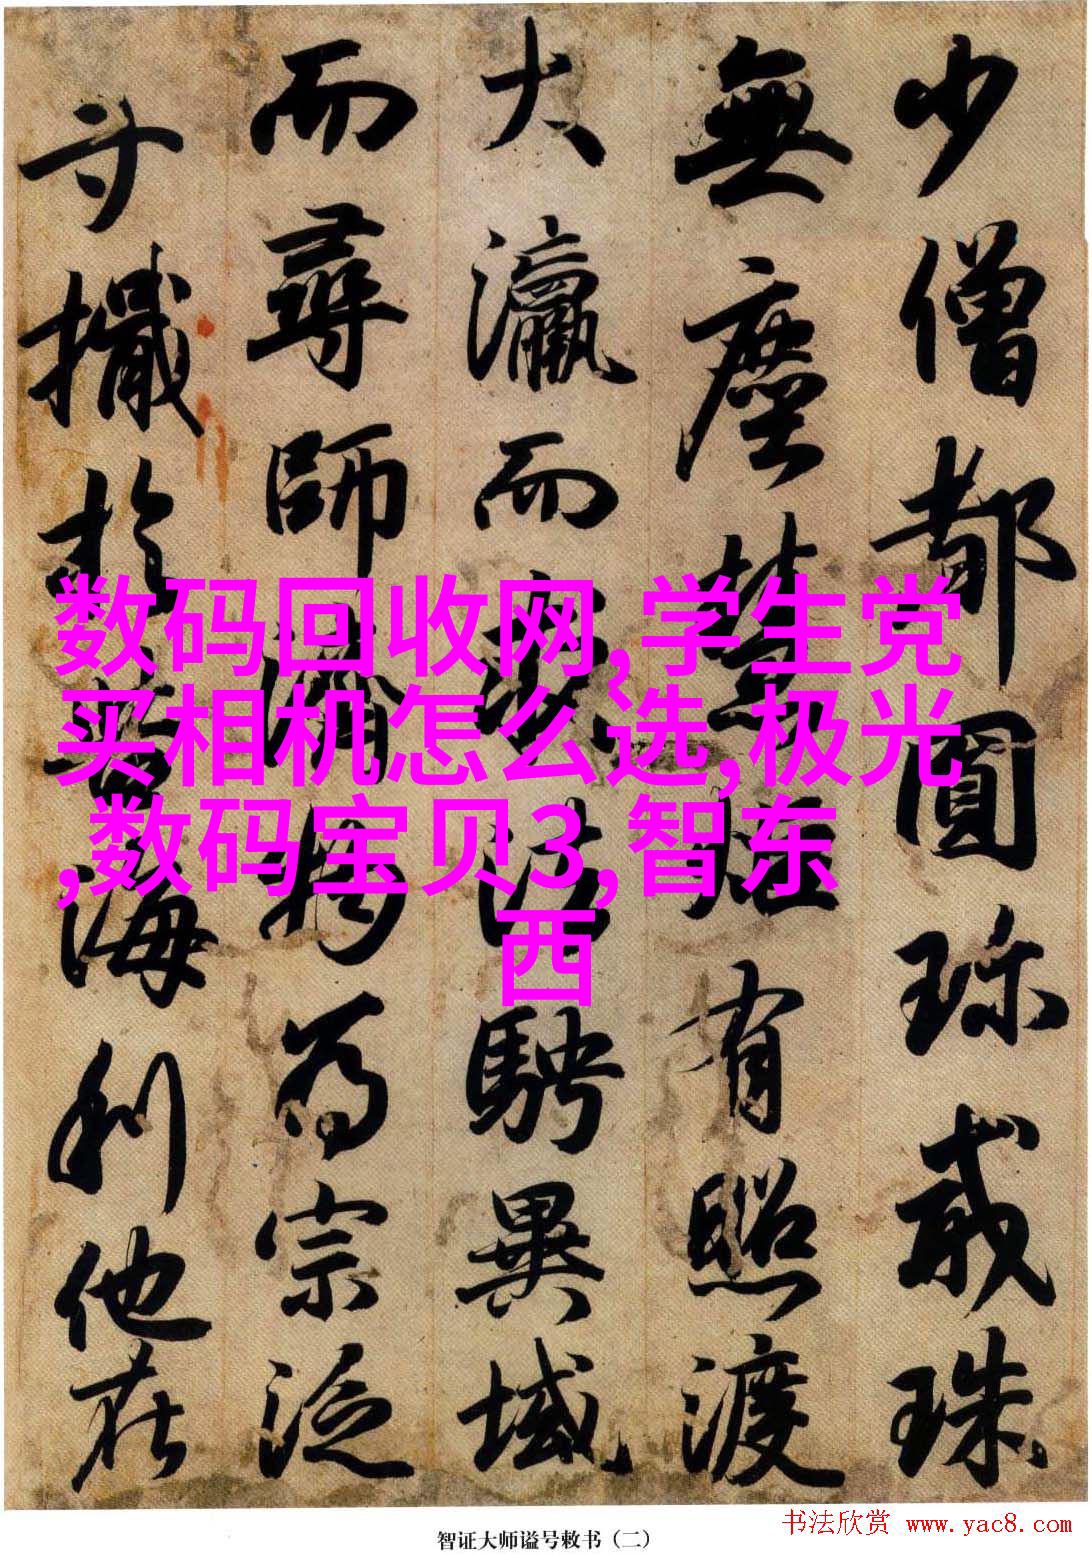 少僧都圓珎戒珠
無塵慧炬有照渡
大瀛而求法騁異域
而尋師濟物為宗泛
寸檝於苦海利他在
数码回收网,学生党
买相机怎么选,极光
,数码宝贝3,智东
西
书法欣赏 www.yac8.com
智证大师谥号敕书（二）